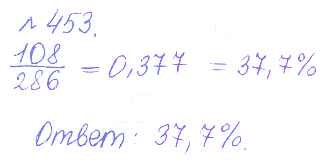 № 453.
108/286 = 0,377 = 37,7%
Ответ: 37,7%.